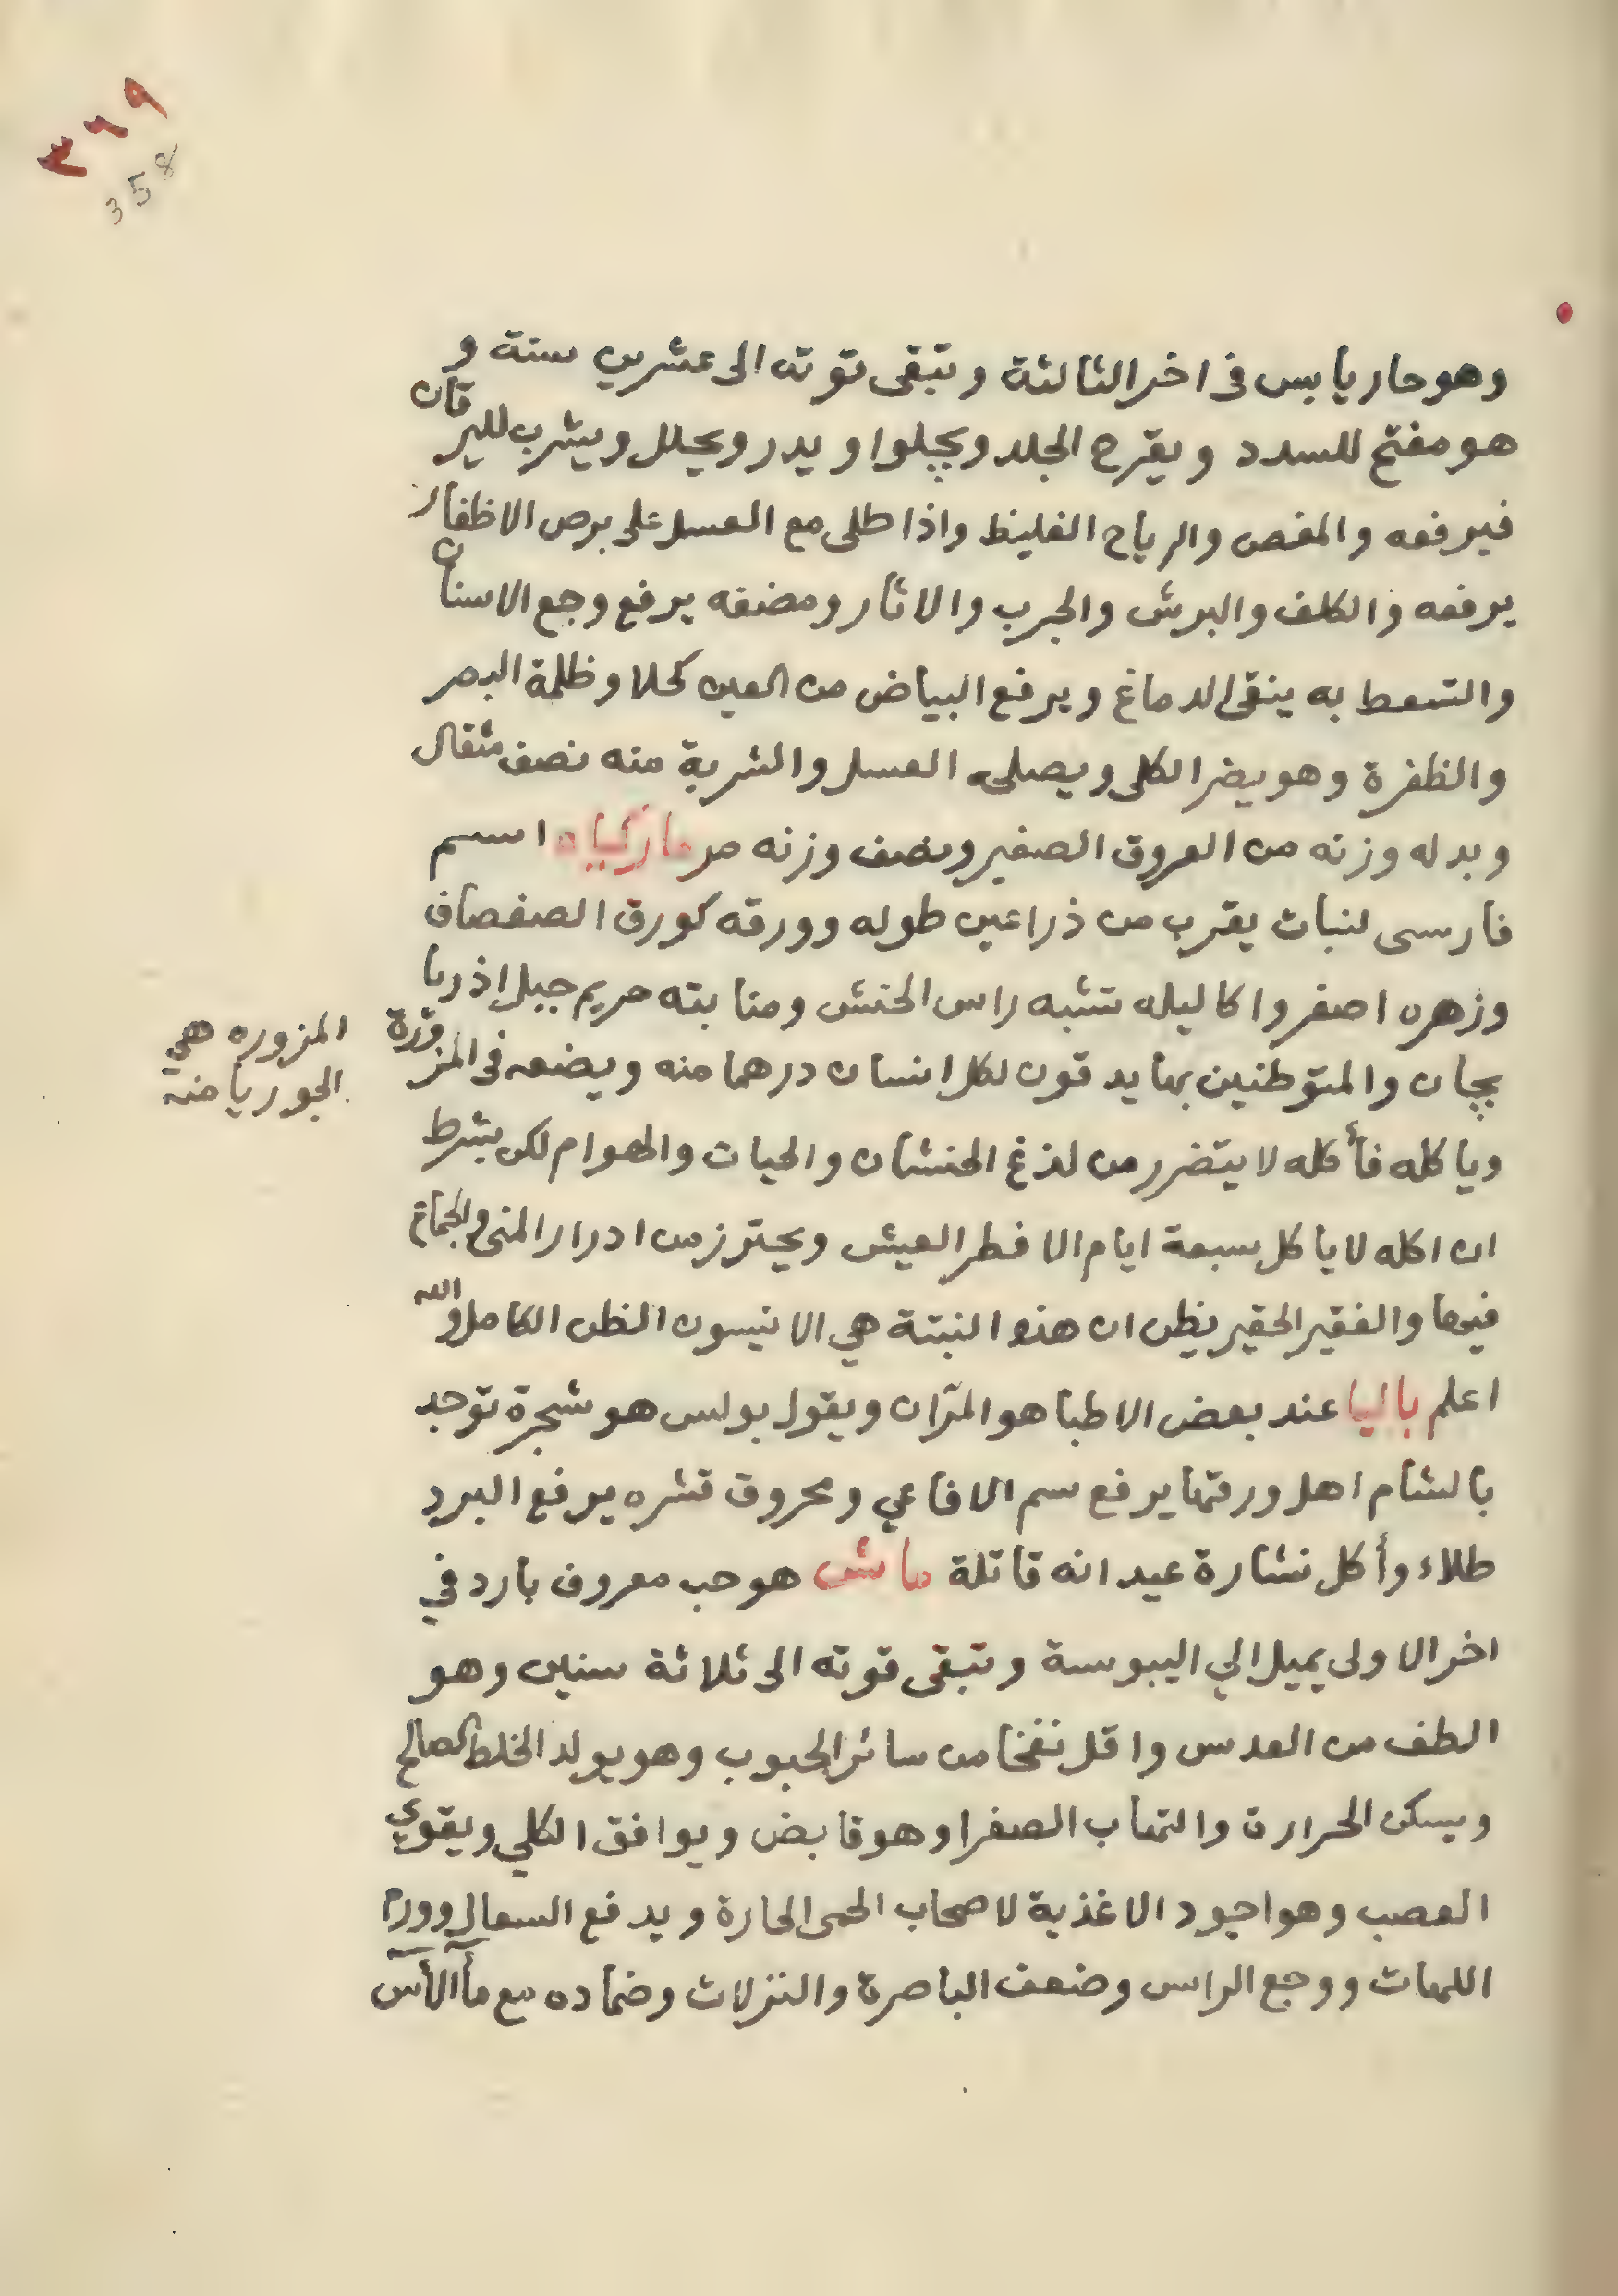 ٣٦٩
358
وهو حار يابس فى اخر الثالثة وتبقى قوته الى عشرين سنة و
هو مفتح للسدد ويقرح الجلد ويجلوا ويدر ويحلل ويشرب لليرقان
فيرفعه والمغص والرياح الغليظ واذا طلى مع العسل على برص الاظفار
يرفعه والكلف والبرش والجرب والاثار ومضغه يرفع وجع الاسنان
والتسعط به ينقى الدماغ ويرفع البياض من العين كحلا وظلمة البصر
والظفرة وهو يضر الكلى ويصلحه العسل والشربة منه نصف مثقال
وبدله وزنه من العروق الصغير ونصف وزنه مر مارکیاه اسم
فارسى لنبات يقرب من ذراعين طوله وورقه كورق الصفصاف
وزهره اصفر واكاليله تشبه راس الحنش ومنابته حريم جبل اذربا
يجان والمتوطنين بها يدقون لكل انسان درهما منه ويضعه فى المزورة
المزوره هي
الجوريا منه
وياكله فأكله لا يتضرر من لذغ الحنشان والحيات والهوام لكن بشرط
ان اكله لا ياكل سبعة ايام الا فطر العيش ويحترز من ادرار المنى والجماع
فيها والفقير الحقير يظن ان هذه النبتة هي الانيسون الظن الكامل والله
اعلم باليا عند بعض الاطبا هو المرّان ويقول بولس هو شجرة توجد
بالشام اهل ورقها يرفع سم الافاعي ومحروق قشره يرفع البرد
طلاء وأكل نشارة عيدانه قاتلة ماش هو حب معروف بارد في
اخر الاولى يميل الي اليبوسة وتبقى قوته الى ثلاثة سنين وهو
الطف من العدس واقل نفخا من سائر الحبوب وهو يولد الخلط الصالح
ويسكن الحرارة والتهاب الصفرا وهو قابض ويوافق الكلي ويقوي
العصب وهو اجود الاغذية لاصحاب الحمى الحارة ويدفع السعال وورم
اللهات ووجع الراس وضعف الباصرة والنزلات وضماده مع مآ الآس